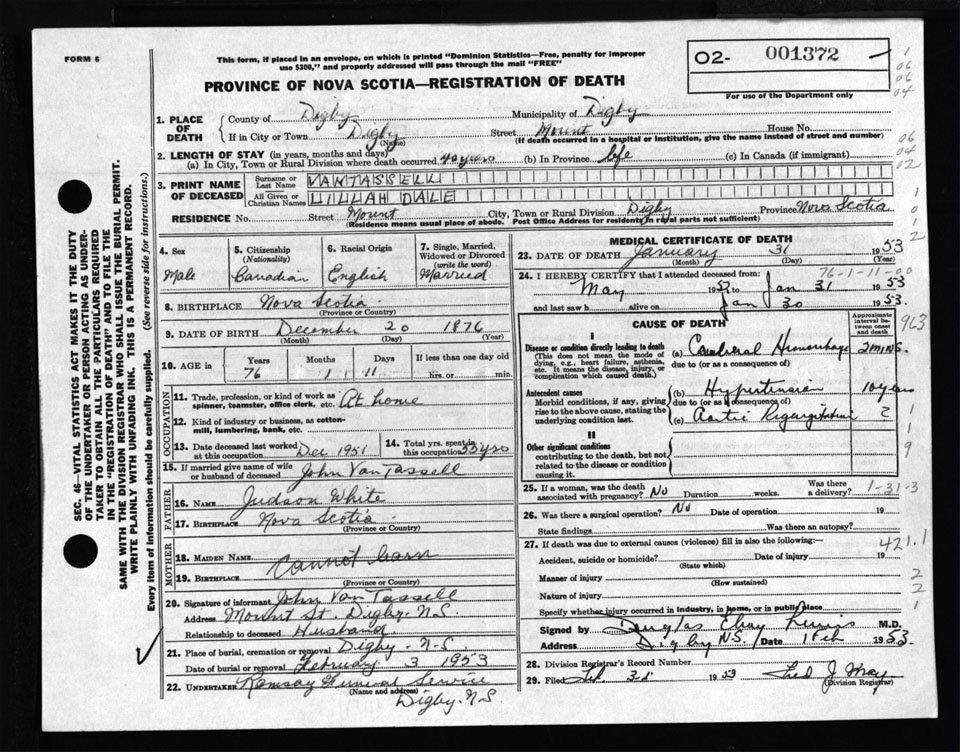 FORM 6
This form, if placed in an envelope, on which is printed "Dominion Statistics—Free, penalty for improper
use $300," and properly addressed will pass through the mail "FREE"
PROVINCE OF NOVA SCOTIA—REGISTRATION OF DEATH
02- 001372
For use of the Department only
1
06
06
04
1. PLACE OF DEATH
County of Digby Municipality of Digby
If in City or Town Digby Street Mount House No.
(Name) (If death occurred in a hospital or institution, give the name instead of street and number)
06
04
02
2. LENGTH OF STAY (in years, months and days)
(a) In City, Town or Rural Division where death occurred 40 years (b) In Province life (c) In Canada (if immigrant)
3. PRINT NAME OF DECEASED
Surname or Last Name VANTASSELL
All Given or Christian Names LILLAH DALE
RESIDENCE No. Street Mount City, Town or Rural Division Digby Province Nova Scotia
(Residence means usual place of abode. Post Office Address for residents in rural parts not sufficient)
4. Sex Male
5. Citizenship (Nationality) Canadian
6. Racial Origin English
7. Single, Married, Widowed or Divorced (write the word) Married
8. BIRTHPLACE Nova Scotia
(Province or Country)
9. DATE OF BIRTH December 20 1876
(Month) (Day) (Year)
10. AGE in Years 76 Months 1 Days 11 If less than one day old
hrs. or min.
OCCUPATION
11. Trade, profession, or kind of work as
spinner, teamster, office clerk, etc. At home
12. Kind of industry or business, as cotton-
mill, lumbering, bank, etc.
13. Date deceased last worked
at this occupation Dec 1951
14. Total yrs. spent in
this occupation 55 yrs
15. If married give name of wife
or husband of deceased John Van Tassell
FATHER
16. Name Judson White
17. Birthplace Nova Scotia
(Province or Country)
MOTHER
18. MAIDEN NAME Cannot learn
19. BIRTHPLACE
(Province or Country)
20. Signature of informant John Van Tassell
Address Mount St. Digby N.S.
Relationship to deceased Husband
21. Place of burial, cremation or removal Digby N.S.
Date of burial or removal February 3 1953
22. UNDERTAKER Ramsay Funeral Service
(Name and address) Digby N.S.
MEDICAL CERTIFICATE OF DEATH
23. DATE OF DEATH January 31 1953
(Month) (Day)
76-1-11-00
24. I HEREBY CERTIFY that I attended deceased from:
May 1952 to Jan 31 1953
and last saw h alive on Jan 30 1953.
CAUSE OF DEATH
Approximate interval between onset and death
963
I
Disease or condition directly leading to death
(This does not mean the mode of
dying, e.g., heart failure, asthenia,
etc. It means the disease, injury, or
complication which caused death.
(a) Cerebral Hemorrhage 2 mins.
due to (or as a consequence of)
Antecedent causes
Morbid conditions, if any, giving
rise to the above cause, stating the
underlying condition last.
(b) Hypertension 10 years
due to (or as a consequence of)
(c) Aortic Regurgitation
II
Other significant conditions
contributing to the death, but not
related to the disease or condition
causing it.
25. If a woman, was the death
associated with pregnancy? No Duration weeks. Was there a delivery?
1-31-3
26. Was there a surgical operation? No Date of operation 19
State findings Was there an autopsy?
27. If death was due to external causes (violence) fill in also the following:—
421.1
Accident, suicide or homicide? Date of injury 19
(State which)
Manner of injury
(How sustained)
Nature of injury
Specify whether injury occurred in industry, in home, or in public place
Signed by M.D.
Address Digby N.S. Date 1 Feb 1953.
28. Division Registrar's Record Number
29. Filed Feb. 3d 1953
(Division Registrar)
SEC. 46—VITAL STATISTICS ACT MAKES IT THE DUTY
OF THE UNDERTAKER OR PERSON ACTING AS UNDER-
TAKER TO OBTAIN ALL THE PARTICULARS REQUIRED
IN THE "REGISTRATION OF DEATH" AND TO FILE THE
SAME WITH THE DIVISION REGISTRAR WHO SHALL ISSUE THE BURIAL PERMIT.
WRITE PLAINLY WITH UNFADING INK. THIS IS A PERMANENT RECORD.
Every item of information should be carefully supplied. (See reverse side for instructions.)